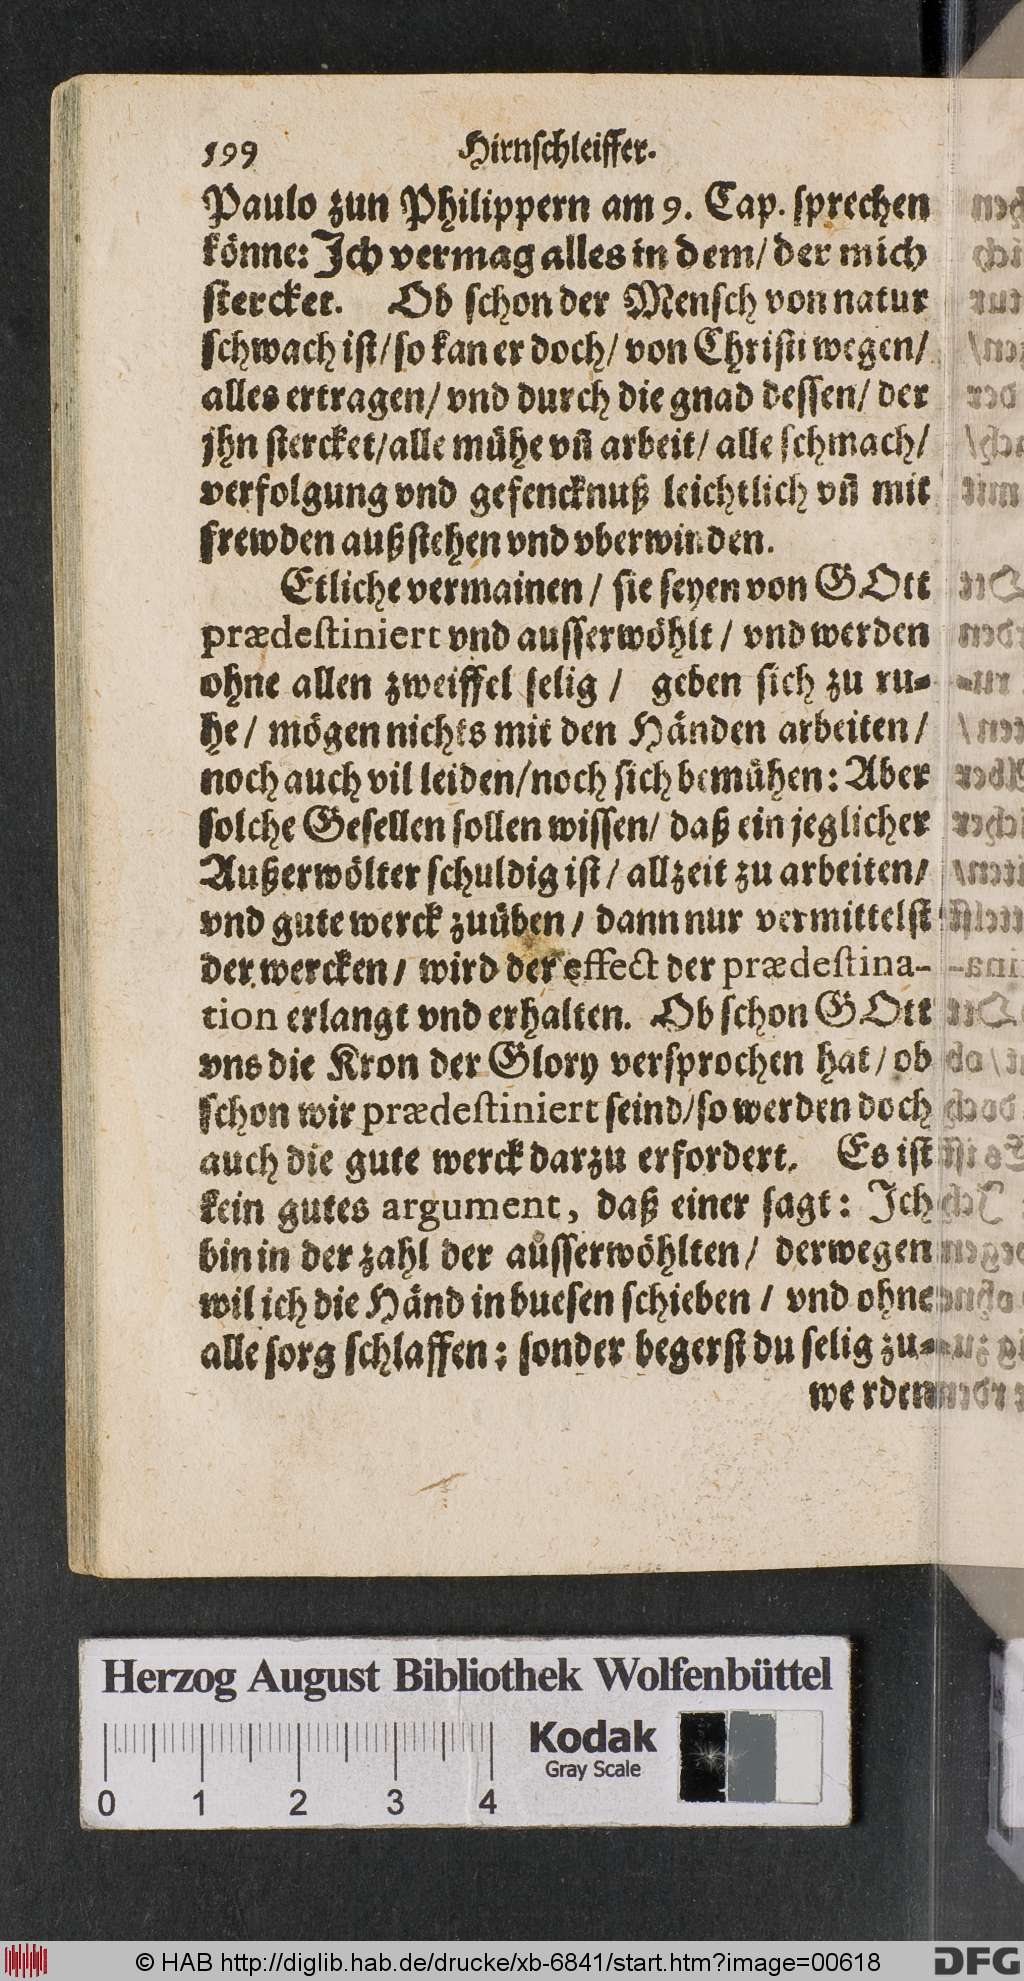 599 Hirnschleiffer.
Paulo zun Philippern am 9. Cap. sprechen
könne: Ich vermag alles in dem/ der mich
stercket. Ob schon der Mensch von natur
schwach ist/ so kan er doch/ von Christi wegen/
alles ertragen/ vnd durch die gnad dessen/ der
jhn stercket/ alle mühe vñ arbeit/ alle schmach/
verfolgung vnd gefencknuß leichtlich vñ mit
frewden außstehen vnd vberwinden.
Etliche vermainen / sie seyen von GOtt
prædestiniert vnd ausserwöhlt / vnd werden
ohne allen zweiffel selig / geben sich zu ru-
he / mögen nichts mit den Händen arbeiten /
noch auch vil leiden/ noch sich bemühen: Aber
solche Gesellen sollen wissen/ daß ein jeglicher
Außerwölter schuldig ist / allzeit zu arbeiten/
vnd gute werck zuüben / dann nur vermittelst
der wercken / wird der effect der prædestina-
tion erlangt vnd erhalten. Ob schon GOtt
vns die Kron der Glory versprochen hat / ob
schon wir prædestiniert seind/ so werden doch
auch die gute werck darzu erfordert. Es ist
kein gutes argument, daß einer sagt: Ich
bin in der zahl der ausserwöhlten / derwegen
wil ich die Händ in buesen schieben / vnd ohne
alle sorg schlaffen; sonder begerst du selig zu-
werden
Herzog August Bibliothek Wolfenbüttel
Kodak
Gray Scale
0 1 2 3 4
© HAB http://diglib.hab.de/drucke/xb-6841/start.htm?image=00618
DFG